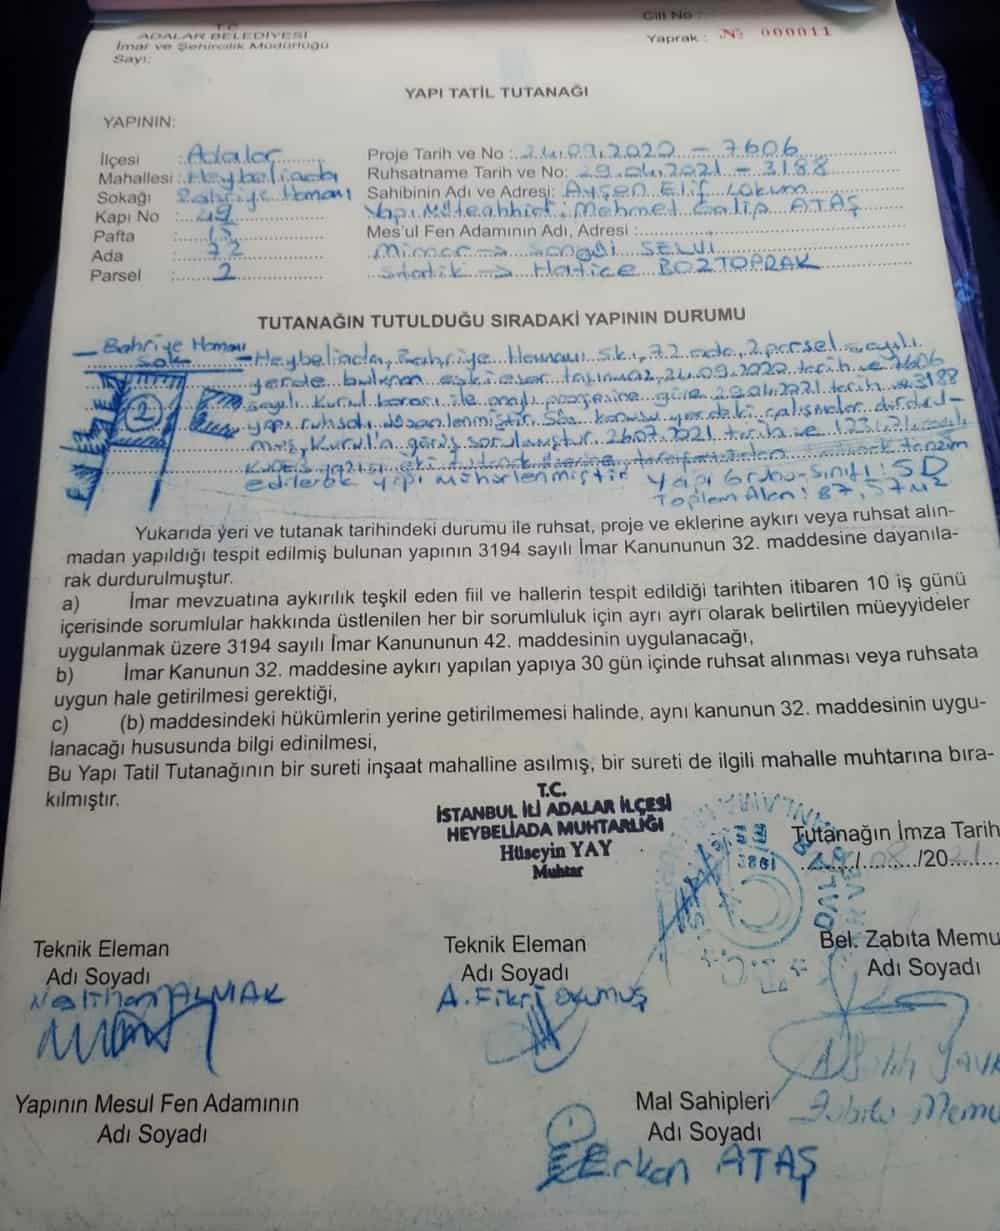 T.C.
ADALAR BELEDİYESİ
İmar ve Şehircilik Müdürlüğü
Sayı:
Cilt No :
Yaprak : № 000011
YAPI TATİL TUTANAĞI
YAPININ:
İlçesi : Adalar
Mahallesi : Heybeliada
Sokağı Bahriye Hamamı
Kapı No : 49
Pafta : 15
Ada : 72
Parsel : 2
Proje Tarih ve No : 24.09.2020 - 7606
Ruhsatname Tarih ve No: 29.04.2021 - 3188
Sahibinin Adı ve Adresi: Ayşen Elif
Yapı Müteahhidi: Mehmet Galip ATAŞ
Mes'ul Fen Adamının Adı, Adresi :
Mimar → SELVİ
Statik → Hatice BOZTOPRAK
TUTANAĞIN TUTULDUĞU SIRADAKİ YAPININ DURUMU
Bahriye Hamamı
Sok
2
Heybeliada, Bahriye Hamamı sk., 72 ada, 2 parsel sayılı
yerde bulunan eski eser taşınmaz, 24.09.2020 tarih ve 7606
sayılı Kurul kararı ile onaylı projesine göre 29.04.2021 tarih 3188
yapı ruhsatı düzenlenmiştir. Söz konusu yerdeki çalışmalar durdurul-
muş, Kurul'a görüş sorulmuştur. 26.07.2021 tarih ve sayılı
KUDEB yazısı eki tutanak tanzim
edilerek yapı mühürlenmiştir
Yapı Grubu-Sınıfı: 5D
Toplam Alan: 87,57 m2
Yukarıda yeri ve tutanak tarihindeki durumu ile ruhsat, proje ve eklerine aykırı veya ruhsat alın-
madan yapıldığı tespit edilmiş bulunan yapının 3194 sayılı İmar Kanununun 32. maddesine dayanıla-
rak durdurulmuştur.
a) İmar mevzuatına aykırılık teşkil eden fiil ve hallerin tespit edildiği tarihten itibaren 10 iş günü
içerisinde sorumlular hakkında üstlenilen her bir sorumluluk için ayrı ayrı olarak belirtilen müeyyideler
uygulanmak üzere 3194 sayılı İmar Kanununun 42. maddesinin uygulanacağı,
b) İmar Kanunun 32. maddesine aykırı yapılan yapıya 30 gün içinde ruhsat alınması veya ruhsata
uygun hale getirilmesi gerektiği,
c) (b) maddesindeki hükümlerin yerine getirilmemesi halinde, aynı kanunun 32. maddesinin uygu-
lanacağı hususunda bilgi edinilmesi,
Bu Yapı Tatil Tutanağının bir sureti inşaat mahalline asılmış, bir sureti de ilgili mahalle muhtarına bıra-
kılmıştır.
T.C.
İSTANBUL İLİ ADALAR İLÇESİ
HEYBELİADA MUHTARLIĞI
Hüseyin YAY
Muhtar
Tutanağın İmza Tarih
/08/2021
Teknik Eleman
Adı Soyadı
ALMAK
Teknik Eleman
Adı Soyadı
A. Fikri OKUMUŞ
Bel. Zabıta Memu
Adı Soyadı
Zabıta Memu
Yapının Mesul Fen Adamının
Adı Soyadı
Mal Sahipleri
Adı Soyadı
Erkan ATAŞ